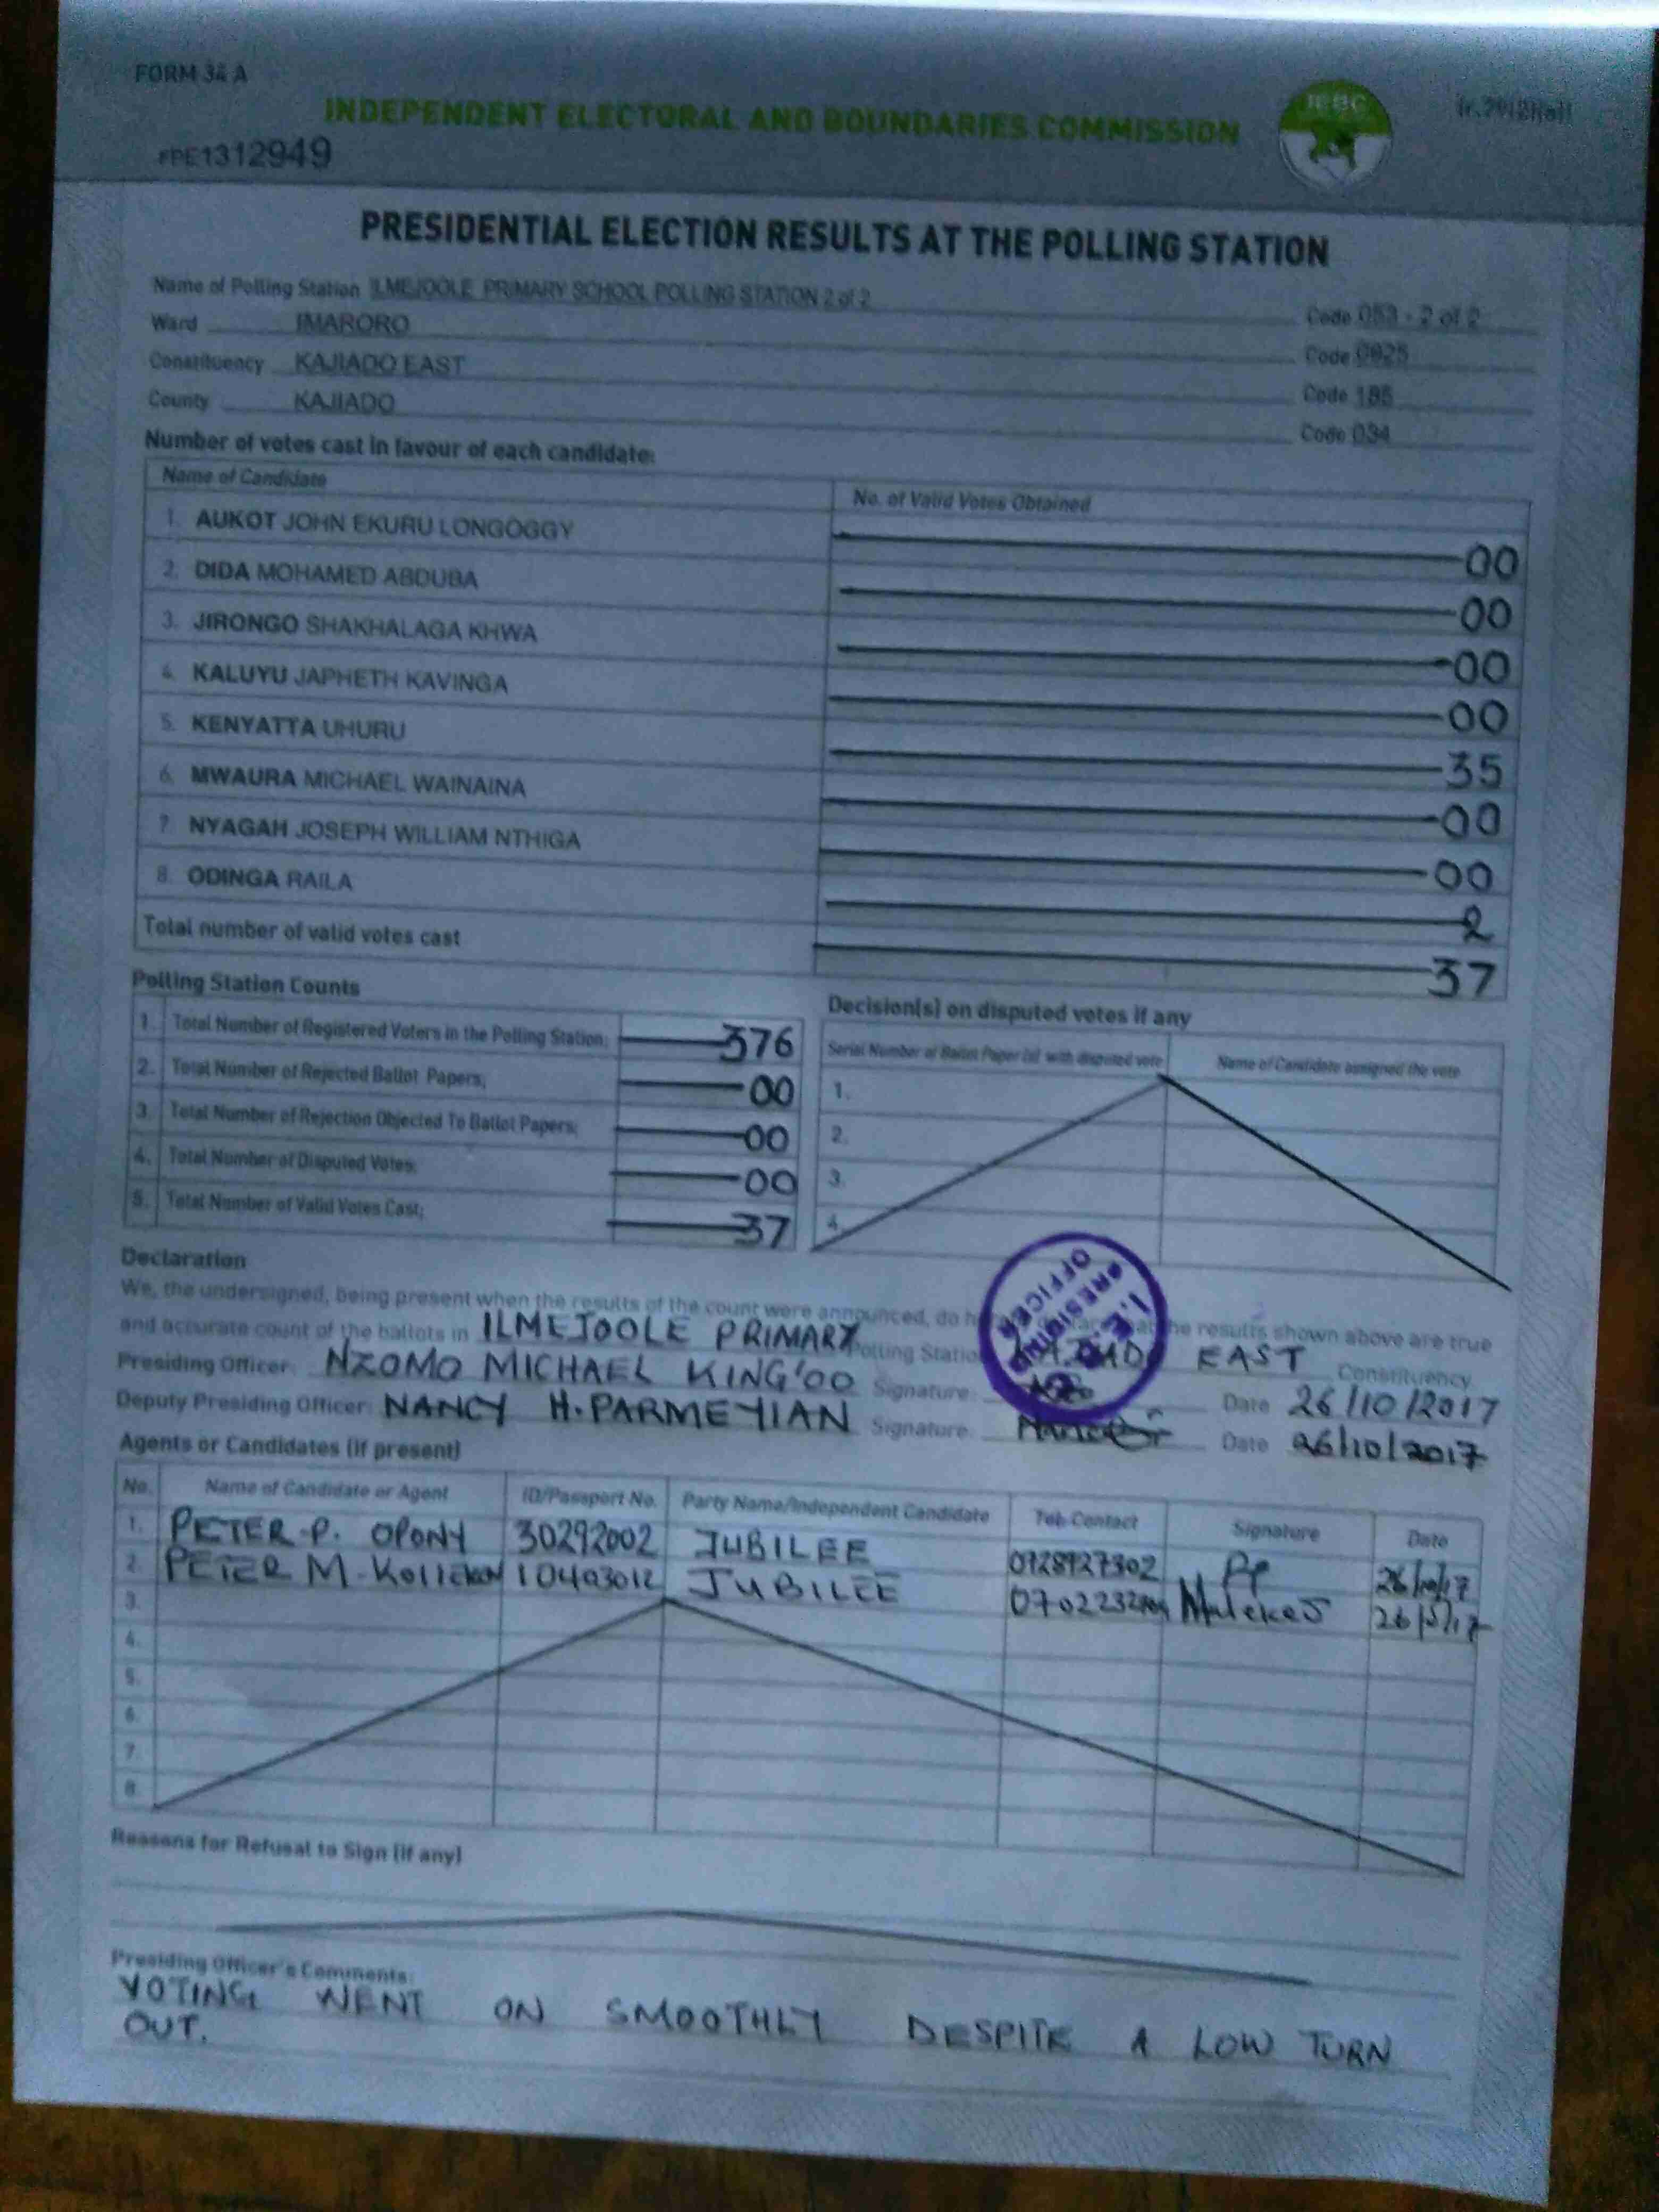 FORM 34 A
INDEPENDENT ELECTORAL AND BOUNDARIES COMMISSION
IEBC
1312949
PRESIDENTIAL ELECTION RESULTS AT THE POLLING STATION
Name of Polling Station ILMEJOOLE PRIMARY SCHOOL POLLING STATION 2 of 2 Code 053 - 2 of 2
Ward IMARORO Code
Constituency KAJIADO EAST Code 185
County KAJIADO Code 034
Number of votes cast in favour of each candidate:
Name of Candidate No. of Valid Votes Obtained
1. AUKOT JOHN EKURU LONGOGGY 00
2. DIDA MOHAMED ABDUBA 00
3. JIRONGO SHAKHALAGA KHWA 00
4. KALUYU JAPHETH KAVINGA 00
5. KENYATTA UHURU 35
6. MWAURA MICHAEL WAINAINA 00
7. NYAGAH JOSEPH WILLIAM NTHIGA 00
8. ODINGA RAILA 2
Total number of valid votes cast 37
Polling Station Counts
1. Total Number of Registered Voters in the Polling Station; 376
2. Total Number of Rejected Ballot Papers; 00
3. Total Number of Rejection Objected To Ballot Papers; 00
4. Total Number of Disputed Votes; 00
5. Total Number of Valid Votes Cast; 37
Decision(s) on disputed votes if any
Serial Number of Ballot Paper (s) with disputed vote Name of Candidate assigned the vote
1.
2.
3.
4.
Declaration
We, the undersigned, being present when the results of the count were announced, do the results shown above are true
and accurate count of the ballots in ILMEJOOLE PRIMARY Polling Station EAST Constituency
I.E.B.C PRESIDING OFFICER
Presiding Officer: NZOMO MICHAEL KING'OO Signature: Date 26/10/2017
Deputy Presiding Officer: NANCY H. PARMEYIAN Signature: Date 26/10/2017
Agents or Candidates (if present)
No. Name of Candidate or Agent ID/Passport No. Party Name/Independent Candidate Tel: Contact Signature Date
1. PETER P. OPONY 30292002 JUBILEE 0728927302 PP 26/10/17
2. PETER M. JUBILEE
3.
4.
5.
6.
7.
8.
Reasons for Refusal to Sign (if any)
Presiding Officer's Comments:
VOTING WENT ON SMOOTHLY DESPITE A LOW TURN
OUT.